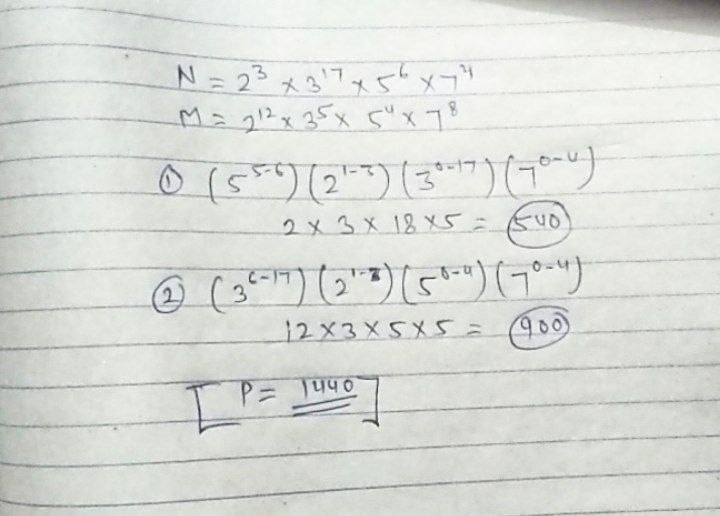 N = 2³ × 3¹⁷ × 5⁶ × 7⁴
M = 2¹² × 3⁵ × 5⁴ × 7⁸
① (5⁵⁻⁶) (2¹⁻³) (3⁰⁻¹⁷) (7⁰⁻⁴)
2 × 3 × 18 × 5 = 540
② (3⁶⁻¹⁷) (2¹⁻³) (5⁰⁻⁴) (7⁰⁻⁴)
12 × 3 × 5 × 5 = 900
[ P = 1440 ]